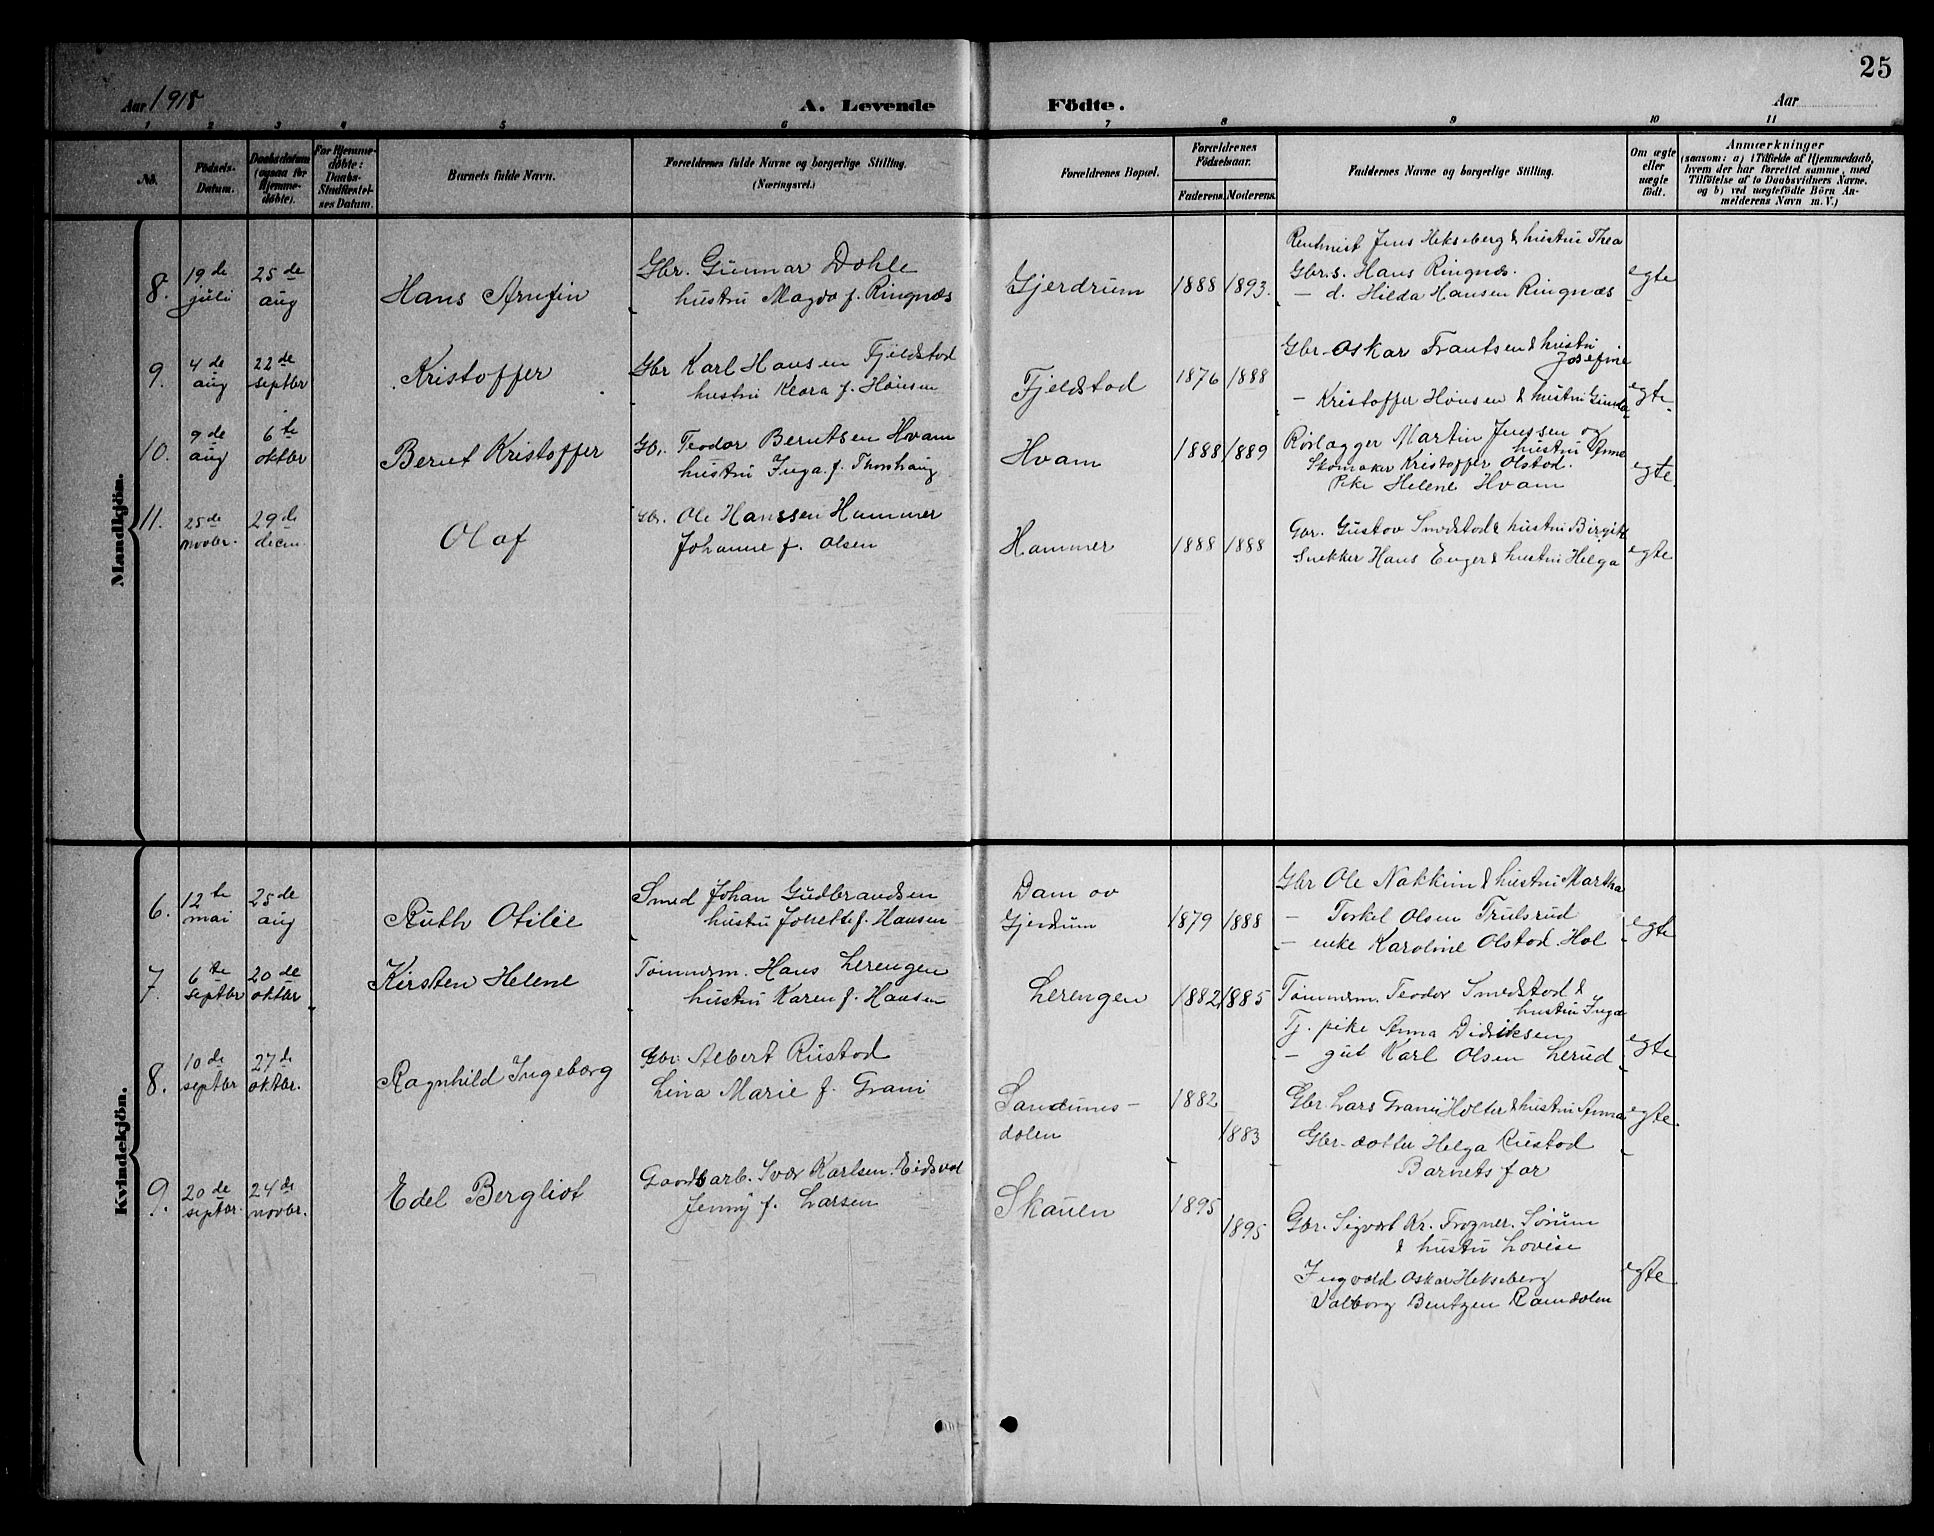 25
Aar 1918
A. Levende
Födte.
Aar
1 2 3 4 5 6 7 8 9 10 11
No.
Födsels-
Datum.
Daabsdatum
(ogsaa for
Hjemme-
döbte).
For Hjemme-
döbte:
Daabs-
Stadfæstel-
ses Datum.
Barnets fulde Navn.
Forældrenes fulde Navne og borgerlige Stilling.
(Næringsvei.)
Forældrenes Bopæl.
Forældrenes
Födselsaar.
Faderens.
Moderens.
Faddernes Navne og borgerlige Stilling.
Om ægte
eller
uægte
födt.
Anmærkninger
(saasom: a) i Tilfælde af Hjemmedaab,
hvem der har forrettet samme, med
Tilföielse af to Daabsvidners Navne.
og b) ved uægtefödte Börn An-
melderens Navn m. V.)
Mandkjön.
8.
19de
juli
25de
aug
Hans Arnfin
Gbr. Gunnar Dohle
hustru Magda f. Ringnæs
Gjerdrum
1888
1893.
Rentenist Jens Hekseberg & hustru Thea
Gbr.s. Hans Ringnæs.
— d. Hilda Hansen Ringnæs
egte
9.
4de
aug
22de
septbr
Kristoffer
Gbr Karl Hansen Fjeldstad
hustru Klara f. Hansen
Fjeldstad
1876
1888
Gbr. Oskar Frantsen & hustru
Josefine
— Kristoffer Hansen & hustru Gunda
egte.
10.
9de
aug
6te
oktbr
Bernt Kristoffer
Gbr. Teodor Berntsen Hvam
hustru Inga f. Thorshaug
Hvam
1888
1889
Rørlægger Martin Jenssen og
hustru Anna
Skomaker Kristoffer Olstad.
Pike Helene Hvam
egte.
11.
25de
novbr.
29de
decm.
Olaf
Gbr. Ole Hanssen Hammer
Johanne f. Olsen
Hammer
1888
1888
Gbr. Gustav Smedstad & hustru Birgitt
Snekker Hans Enger & hustru Helga
egte
Kvindekjön.
6.
12te
mai
25de
aug
Ruth Otilie
Smed Johan Gudbrandsen
hustru Jonette f. Hansen
Dam ov
Gjerdrum
1879
1888
Gbr Ole Nakkim & hustru Martha
— Torkel Olsen Trulsrud
— enke Karoline Olstad Hol
egte
7.
6te
septbr
20de
oktbr
Kirsten Helene
Tømmerm. Hans Lerengen
hustru Karen f. Hansen
Lerengen
1882
1885
Tømmerm. Teodor Smedstad &
hustru Inga
Tj. pike Anna Didriksen
— gut Karl Olsen Lerud
egte
8.
10de
septbr
27de
oktbr.
Ragnhild Ingeborg
Gbr. Albert Rustad
Lina Marie f. Grani
Sandums-
dalen
1882
1883
Gbr. Lars Grani Holter & hustru Anna
Gbr. datter Helga Rustad
Barnets far
egte.
9.
20de
septbr.
24de
novbr.
Edel Bergliot
Gaardsarb. Ivar Karlsen. Eidsvol
Jenny f. Larsen
Skauen
1895
1895
Gbr. Sigvart Kr. Frogner. Sørum
& hustru Lovise
Ingvald Oskar Hekseberg
Valborg Bentzen Ramdalen
egte